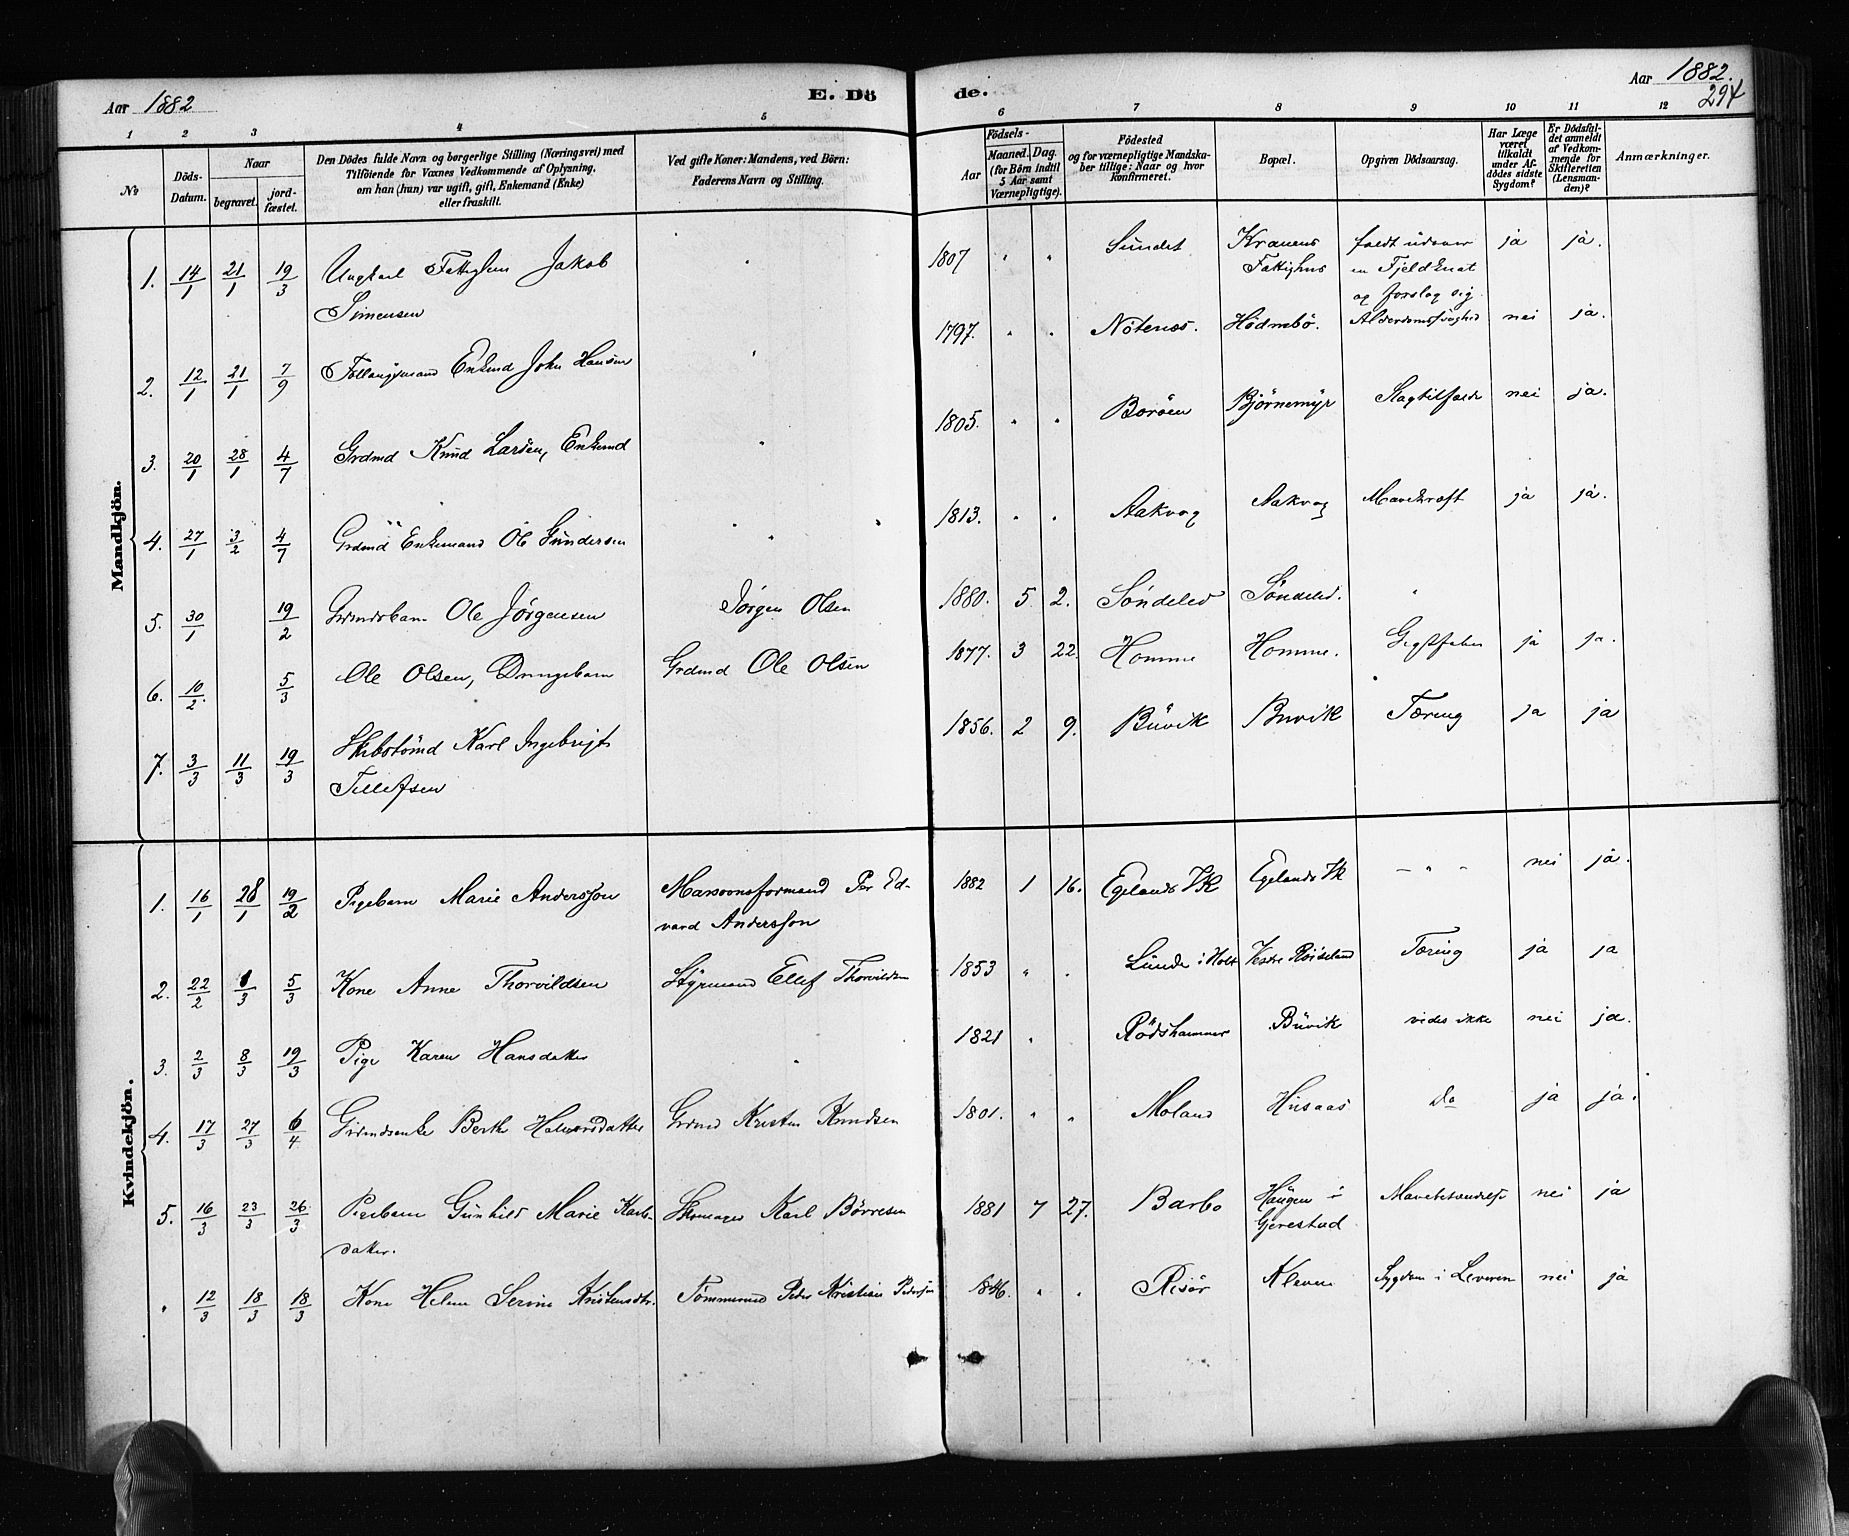 Aar 1882
E. Dö
de.
Aar 1882.
294
1 2 3 4 5 6 7 8 9 10 11 12
No
Döds-
Datum.
Naar
begravet.
jord-
fæstet.
Den Dödes fulde Navn og borgerlige Stilling (Næringsvei) med
Tilföiende for Voxnes Vedkommende af Oplysning,
om han (hun) var ugift, gift, Enkemand (Enke)
eller fraskilt.
Ved gifte Koner: Mandens, ved Börn:
Faderens Navn og Stilling.
Födsels-
Aar
Maaned. Dag.
(for Börn indtil
5 Aar samt
Værnepligtige).
Födested
og for værnepligtige Mandska-
ber tillige: Naar og hvor
konfirmeret.
Bopæl.
Opgiven Dödsaarsag.
Har Læge
været
tilkaldt
under Af-
dödes sidste
Sygdom?
Er Dödsfal-
det anmeldt
af Vedkom-
mende for
Skifteretten
(Lensman-
den)?
Anmærkninger.
Mandkjön.
1. 14/1 21/1 19/3 Ungkarl Fattiglem Jakob " 1807 " " Sundet Kranens faldt udover ja ja.
Simensen Fattighus en Fjeldknat
og forslog sig
2. 12/1 21/1 7/9 Enkemd John Hansen " 1797. " " Nötenæs. Hödnebö. Alderdomssvaghed nei ja.
3. 20/1 28/1 4/7 Grdmd Knud Larsen, Enkemd " 1805. " " Boröen Björnemyr Slagtilfælde nei ja.
4. 27/1 3/2 4/7 Grdmd Enkemand Ole Gundersen " 1813. " " Aakvag Aakvag Mavekræft ja ja.
5. 30/1 19/2 Grdmdsbarn Ole Jörgensen Jörgen Olsen 1880. 5 2. Söndeled Söndeled. "
6. 10/2. 5/3 Ole Olsen, Drengebarn Grdmd Ole Olsen 1877. 3 22 Homme Homme. Gigtfeber ja ja.
7. 3/3 11/3 19/3 Skibstömd Karl Ingebrigt 1856. 2 9. Buvik Buvik Tæring ja ja
Tellefsen
Kvindekjön.
1. 16/1 28/1 19/2 Pigebarn Marie Andersson Masovnsformand Per Ed- 1882 1 16. Egelands Vk Egelands Vk – " – nei ja.
vard Andersson
2. 22/2 1/3 5/3 Kone Anne Thorvildsen Styrmand Ellef Thorvildsen 1853 " " Lunde i Holt Vestre Röiseland Tæring ja ja
3. 2/3 8/3 19/3 Pige Karen Hansdatter " 1821 " Rödshammer Buvik vides ikke nei ja.
4. 17/3 27/3 6/4 Grdmdsenke Berthe Halvorsdatter Grdmd Kristen Knudsen 1801. " " Moland Husaas Do ja ja.
5. 16/3 23/3 26/3 Pigebarn Gunhild Marie Karls- Skomager Karl Börresen 1881 7 27. Barbo Haugen i nei ja
datter. Gjerestad
" 12/3 18/3 18/3 Kone Helene Serine Kristensdtr. Tömmermd Peder Kristian Pedersen 1846. " " Risör Kleven Sygdom i Leveren nei ja